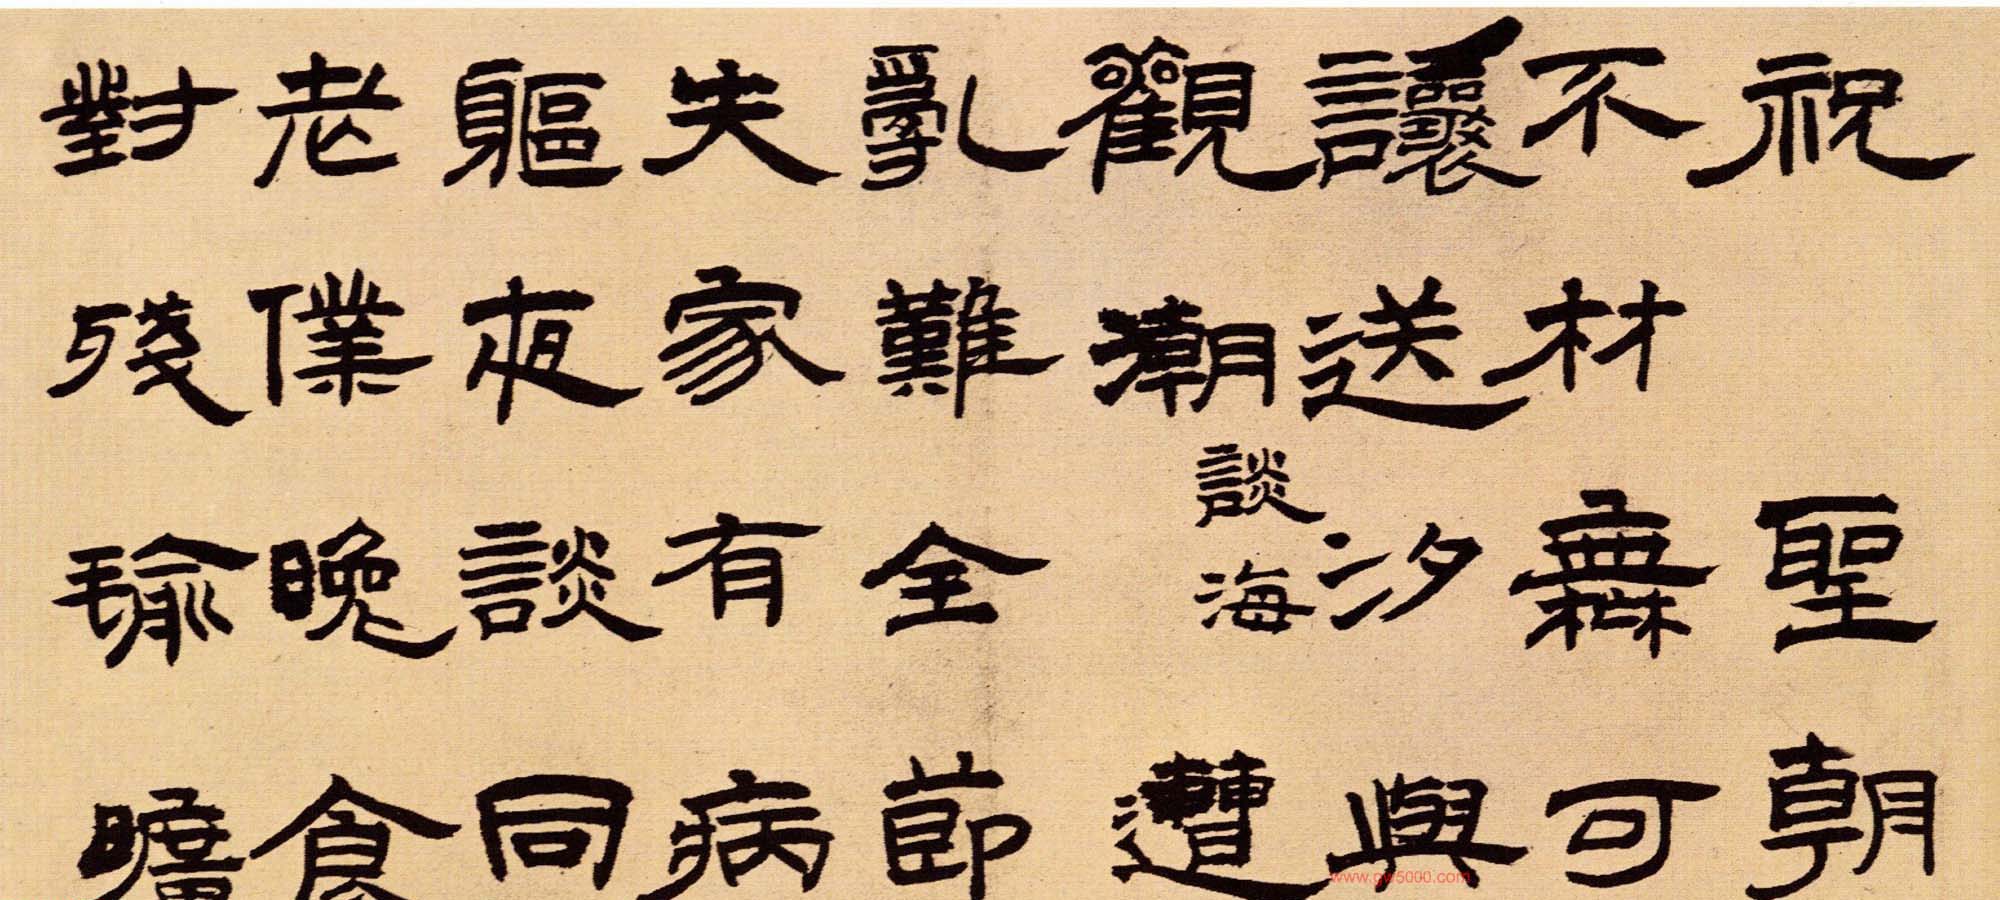 祝聖朝
不材無可
讓送汐與
觀潮談海遭
亂難全節
失家有病
軀夜談同
老僕晚食
對殘瑜曠
www.gw5000.com